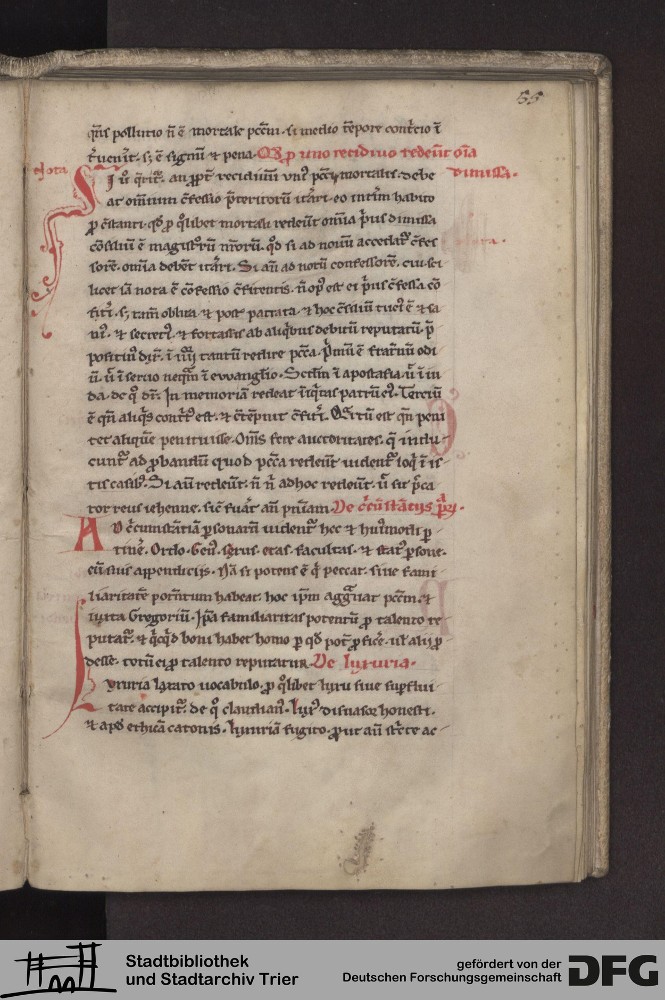 55
q̄nis pollutio n̄ ē mortale pccm̄. si medio tēpore cont͛icio ī
t͛uen͛it. s; ē signum ⁊ pena. Qđ ꝓ uno recidiuo redeūt oīa
Nota
dimissa.
S I u͛o q̄rit͛. an ꝓpt͛ recidiuū uni᷒ pcc̄i mortalis. debe
at omnium ꝯfessio p̄teritorū it͛ari. eo int͛im habito
ꝓ ꝯstanti. qđ ꝓ q͛libet mortali redeūt omnia p͛us dimissa
ꝯsiliū ē magistrorū nr̄orū. qđ si ad nouū accedat͛ ꝯfes
sorē. omnia debēt it͛ari. Si aū ad notū confessorē. cui sci
licet iā nota ē ꝯfessio ꝯfitentis. n̄ op᷒ est ei p͛us ꝯfessa ꝯ
fit͛i. s; tam̄ oblita. ⁊ post patrata. ⁊ hoc ꝯsiliū tuci᷒ ē ⁊ sa
ni᷒. ⁊ secreti᷒. ⁊ fortassis ab aliq͛bus debitū reputatū. p̄
positiu᷒ dix̄. ī iiij tantū redire pcc̄a. p͛mū ē frat͛nū odi
ū. ut̄ ī seruo neq̄m ī euuanglio. Scd̄m ī apostasia. ut̄ ī iu
da. de q͛ dr̄. In memoriā redeat īiq͛tas patrū ei᷒. Terciū
ē q̄n aliq͛s cont͛t᷒ est. ⁊ ꝯtēpnit ꝯfit͛i. Q͛rtū est q̄n peni
tet aliquē penituisse. Om̄s fere auctoritates. q̄ indu
cunt͛ ad ꝓbandū quod pcc̄a redeūt uident͛ loq͛ ī is
tis casib᷒. Si aū redeūt. n̄ n̄ adhoc redeūt. ut̄ sit p̄ca
tor reus iehenne. sic̄ fuat͛ an̄ pniam. De ꝯcūstātijs p̄n̄.
A D ꝯcumstātiā personarū uident͛ hec ⁊ hui᷒modi ꝑ
tinē. Ordo. Gen᷒. sexus. etas. facultas. ⁊ stat᷒ ꝑsone.
cū suis appendicijs. Nā si potens ē q͛ peccat. siue fami
liaritatē potentum habeat. hoc ip̄m aggrauat pccm̄. ⁊
iuxta Gregoriū. Ip̄a familiaritas potentū ꝓ talento re
putat͛. ⁊ q͛cq͛d boni habet homo ꝑ qđ pot̄ ꝓfic͛e. uł alij ꝓ
desse. totū ei ꝓ talento reputatur. De luxuria.
L Vxuria laxato uocabulo. ꝓ q͛libet luxu siue suꝑflui
tate accipit͛. de q͛ claudian᷒. Lux᷒ dissuasor honesti.
⁊ apđ ethicā catonis. Luxuriā fugito. ꝓut aū stricte ac
Stadtbibliothek
und Stadtarchiv Trier
gefördert von der
Deutschen Forschungsgemeinschaft
DFG